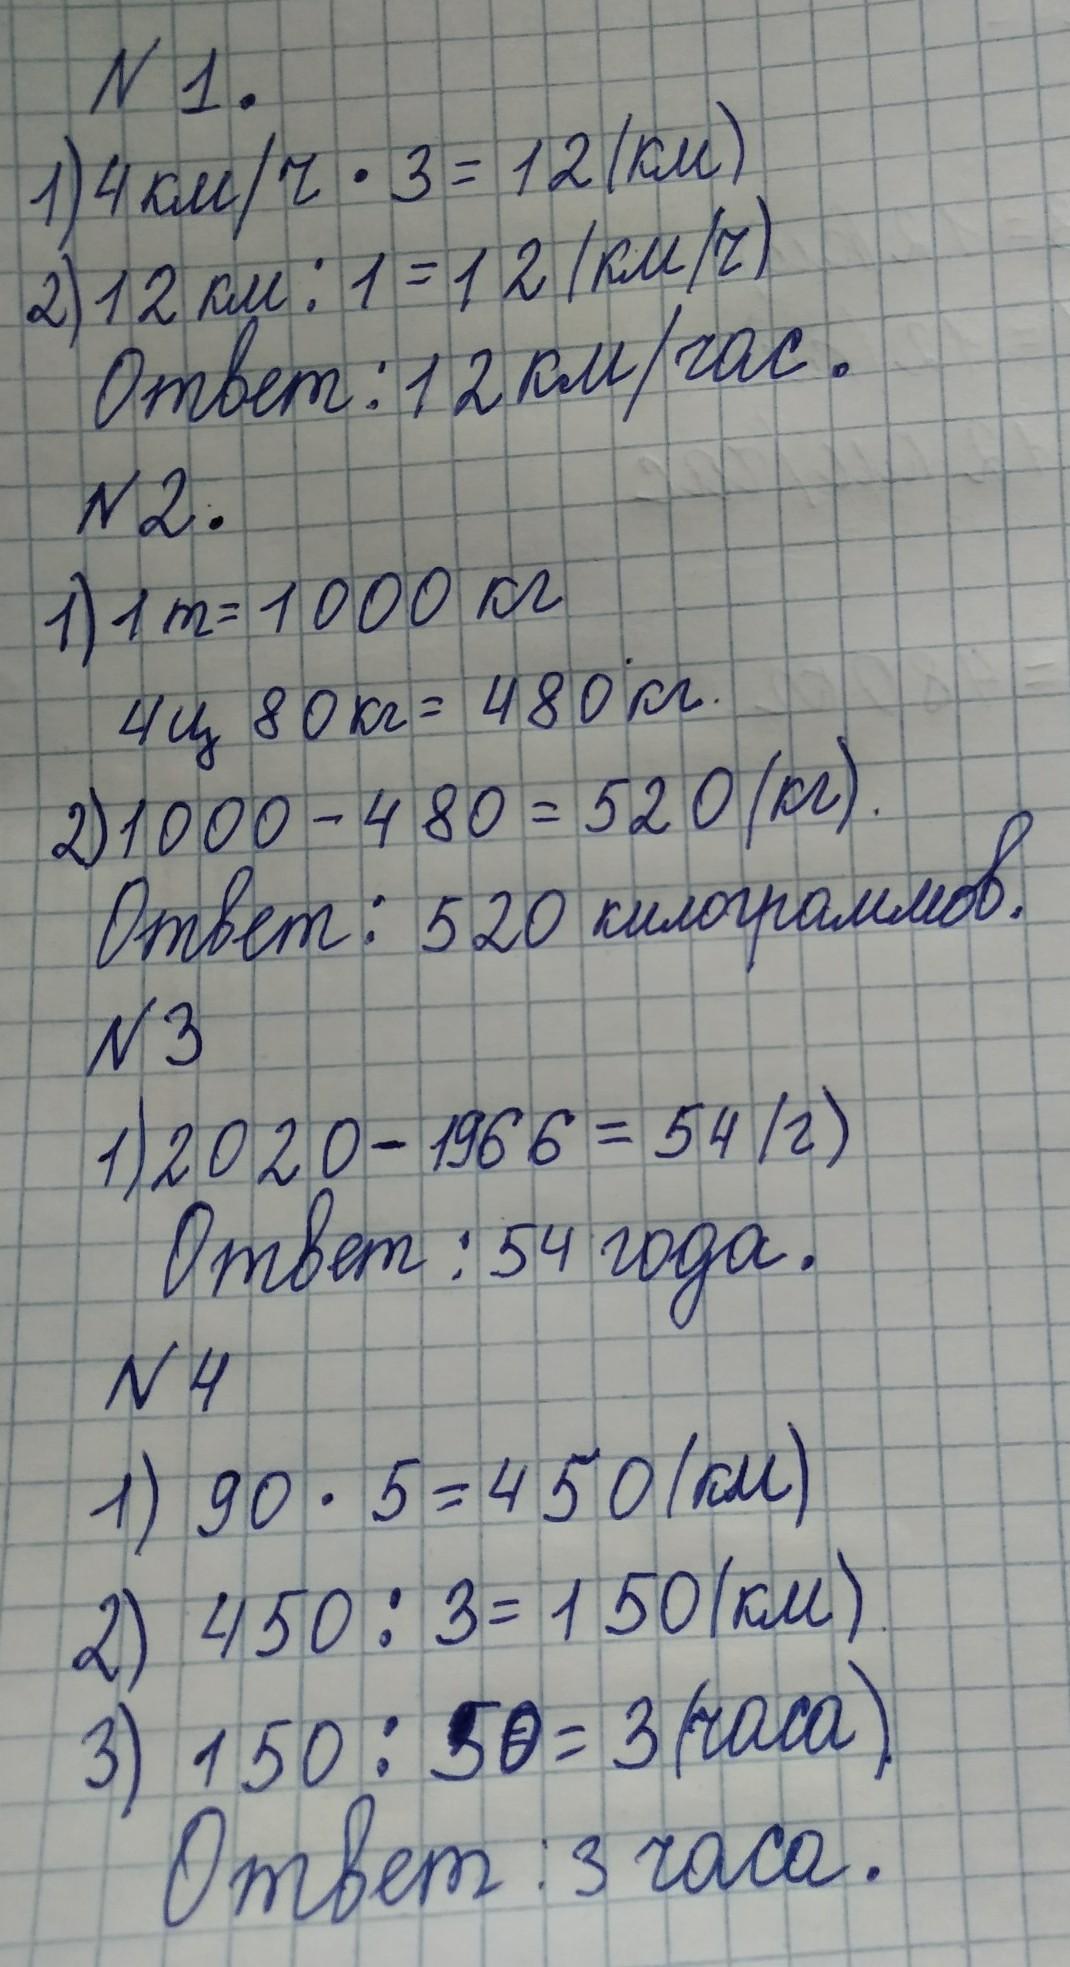 N 1.
1) 4 км/ч · 3 = 12 (км)
2) 12 км : 1 = 12 (км/ч)
Ответ : 12 км/час.
N 2.
1) 1 т = 1000 кг
4 ц 80 кг = 480 кг.
2) 1000 - 480 = 520 (кг).
Ответ : 520 килограммов.
N 3
1) 2020 - 1966 = 54 (г)
Ответ : 54 года.
N 4
1) 90 · 5 = 450 (км)
2) 450 : 3 = 150 (км)
3) 150 : 50 = 3 (часа)
Ответ : 3 часа.